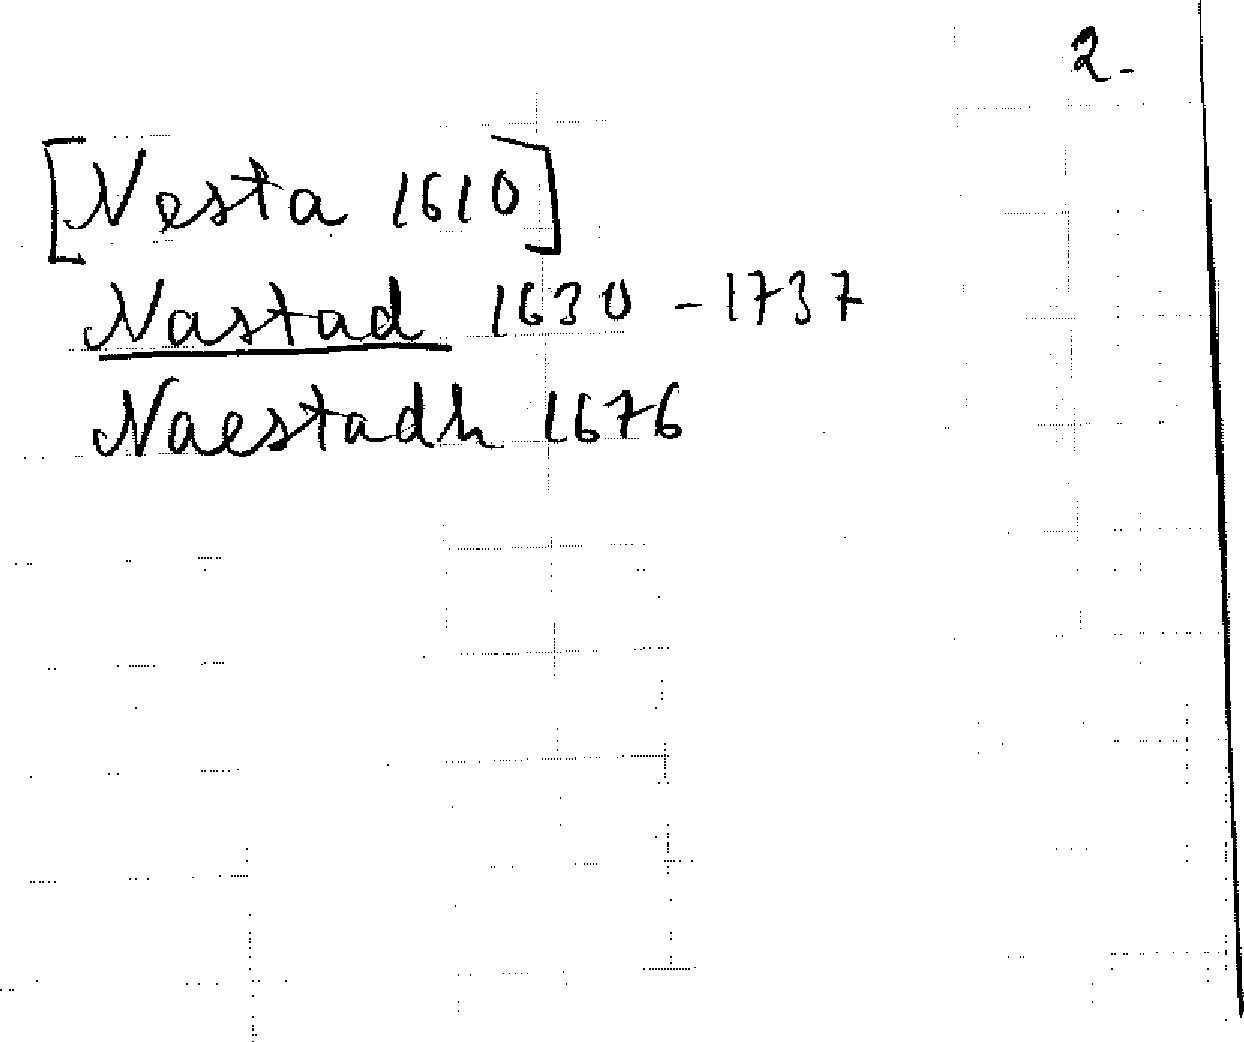 2.
[Nesta 1610]
Nastad 1630 - 1737
Naestadh 1676